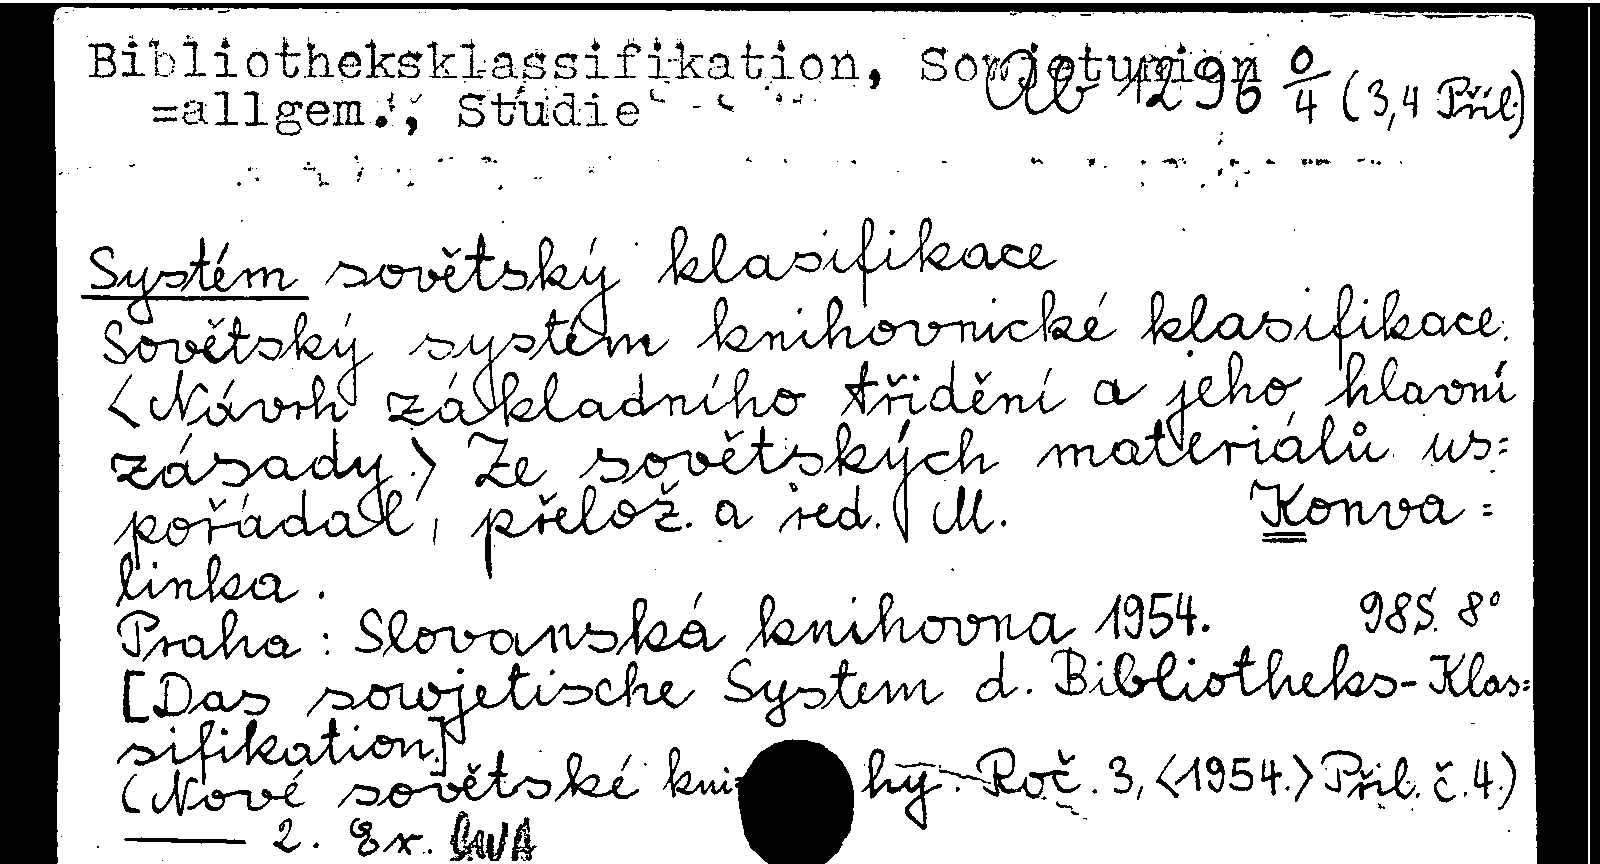 Bibliotheksklassifikation, Sowjetunion
=allgem., Studie
Ab 1296 0/4 (3,4 Příl.)
Systém sovětský klasifikace
Sovětský systém knihovnické klasifikace.
<Návrh základního třídění a jeho hlavní
zásady.> Ze sovětských materiálů us=
pořádal, přelož. a red. M. Konva=
linka.
Praha: Slovanská knihovna 1954. 98S. 8°
[Das sowjetische System d. Bibliotheks-Klas=
sifikation]
(Nové sovětské kni hy. Roč. 3, <1954.> Příl. č. 4.)
—— 2. Ex.